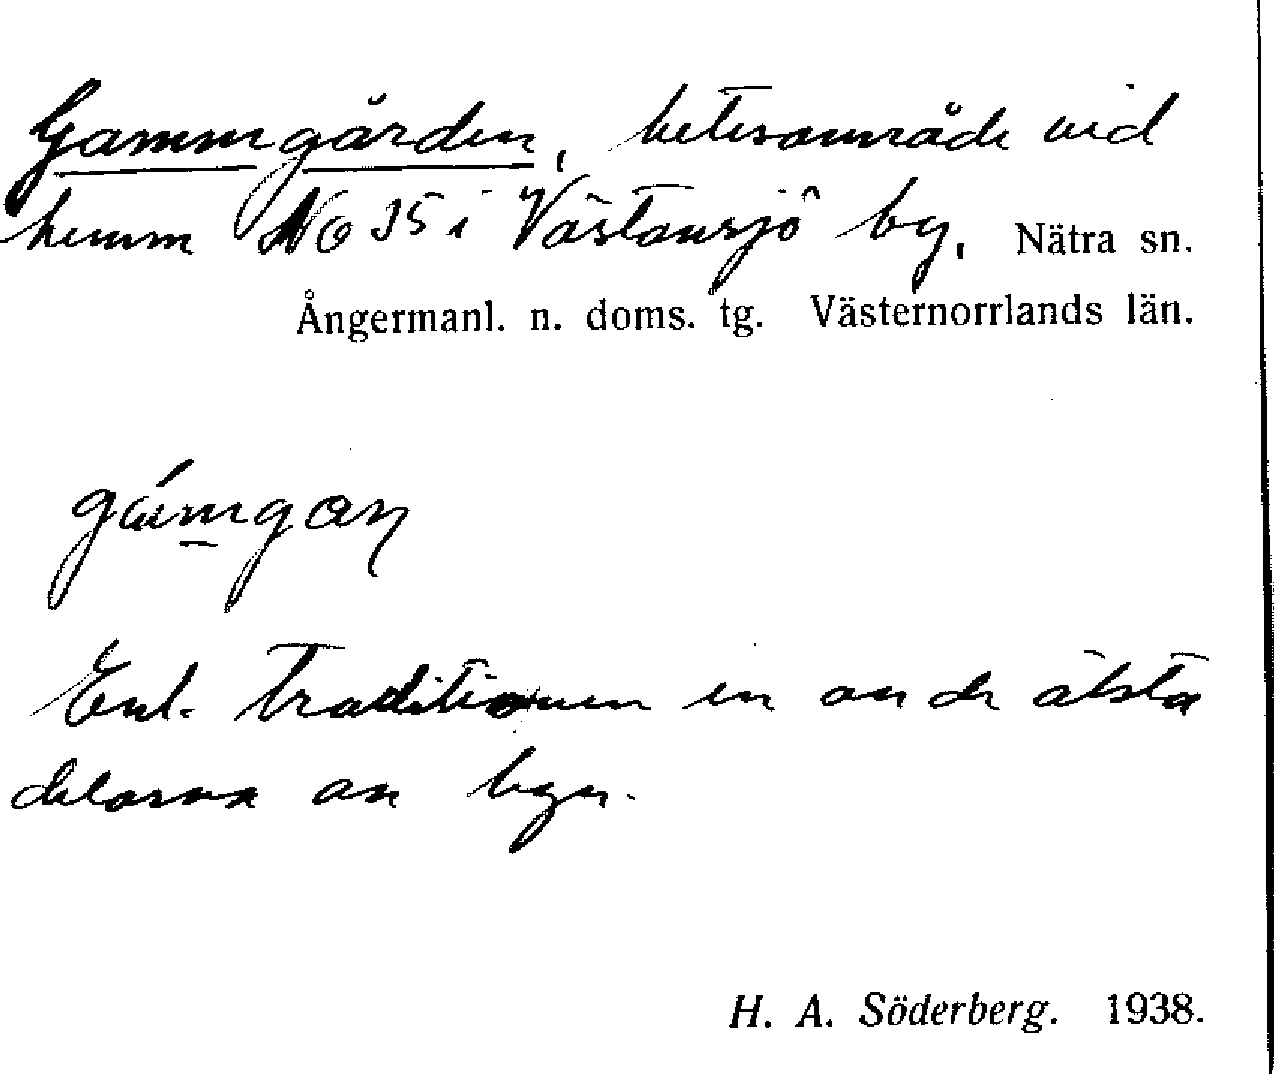 Gammgården, betesområde vid
hemm No 35 i Västansjö by, Nätra sn.
Ångermanl. n. doms. tg. Västernorrlands län.
gámgaɳ
Enl. traditionen en av de älsta
delarna av byn.
H. A. Söderberg. 1938.